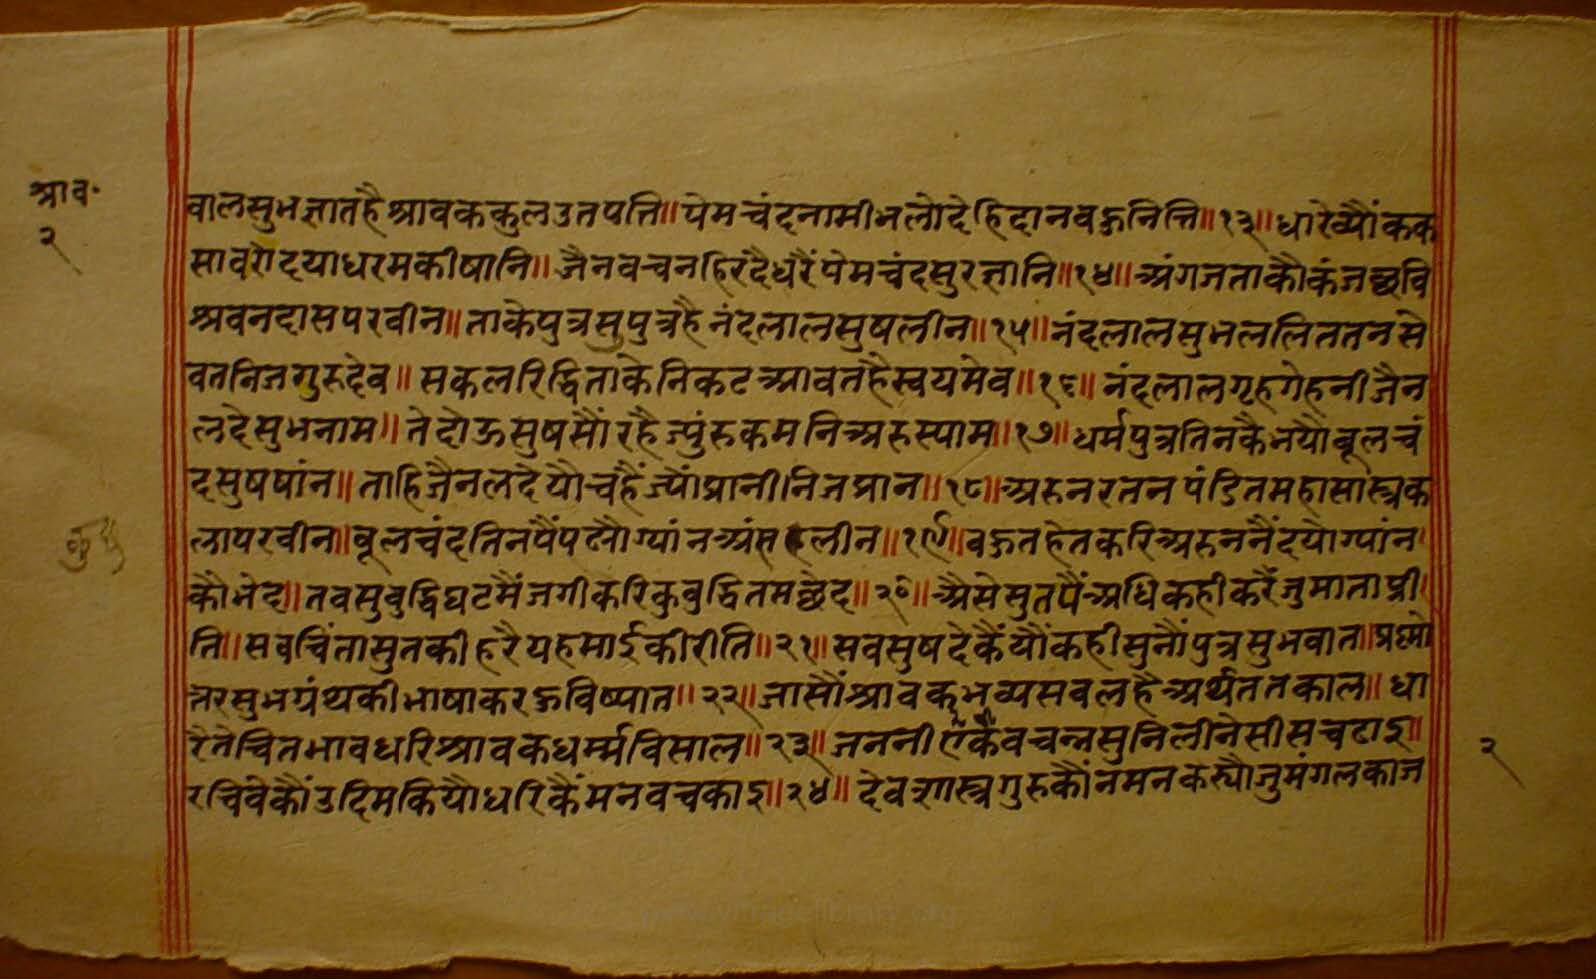 श्राव॰
२
वालसुभज्ञातहैश्रावककुलउतपत्ति॥पेमचंदनामीभलोदेहिदानवऊनित्ति॥१३॥धारेव्यौंकक
सावरोदयाधरमकीषानि॥जैनवचनहिरंदैधरैंपेमचंदसुरज्ञानि॥१४॥अंगजताकौकंजछवि
श्रवनदासपरवीन॥ताकेपुत्रसुपुत्रहैनंदलालसुषलीन॥१५॥नंदलालसुभललिततनसे
वतनिजगुरुदेव॥सकलरिद्धिताकेनिकटआवतहैस्वयमेव॥१६॥नंदलालगृहगेहनीजैन
लदेसुभनाम॥तेदोऊसुषसौंरहैज्युंरुकमनिअरुस्याम॥१७॥धर्मपुत्रतिनकैभयौबूलचं
दसुषषांन॥ताहिजैनलदेयौचहैंज्यौंप्रानीनिजप्रान॥१८॥अरुनरतनपंडितमहासास्त्रक
लापरवीन॥बूलचंदतिनपैंपढ्यौग्यांनअंसलीन॥१९॥वऊतहेतकरिअरुननैंदयौग्यांन
कौभेद॥तवसुवुद्धिघटमैंजगीकरिकुवुद्धितमछेद॥२०॥अैसेसुतपैंअधिकहीकरैंजुमाताप्री
ति॥सवचिंतासुतकीहरैयहमाईकीरीति॥२१॥सवसुषदेकैंयौंकहीसुनौंपुत्रसुभवात॥प्रश्नो
त्तरसुभग्रंथकीभाषाकरऊविष्यात॥२२॥जासौंश्रावकभव्यसवलहैअर्थततकाल॥धा
रैतेचितभावधरिश्रावकधर्म्मविसाल॥२३॥जननीऐंकैवचनसुनिलीनेसीसचढाइ॥
रचिवेकौंउदिमकियौधरिकैंमनवचकाइ॥२४॥देवशास्त्रगुरुकौंनमनकरुयौजुमंगलकाज
२